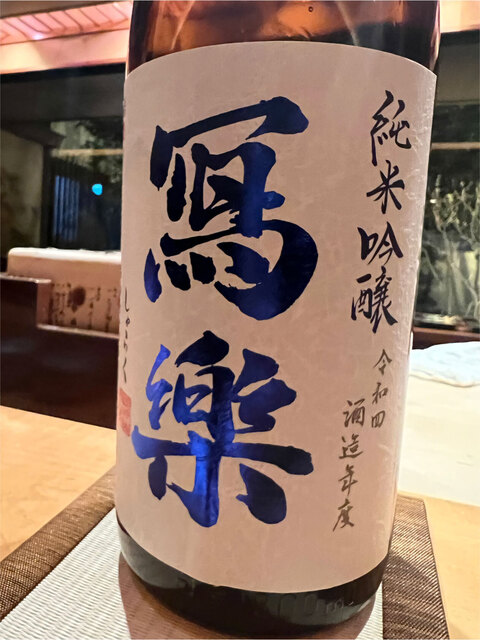 純米吟醸
令和四
酒造年度
寫樂
しゃらく